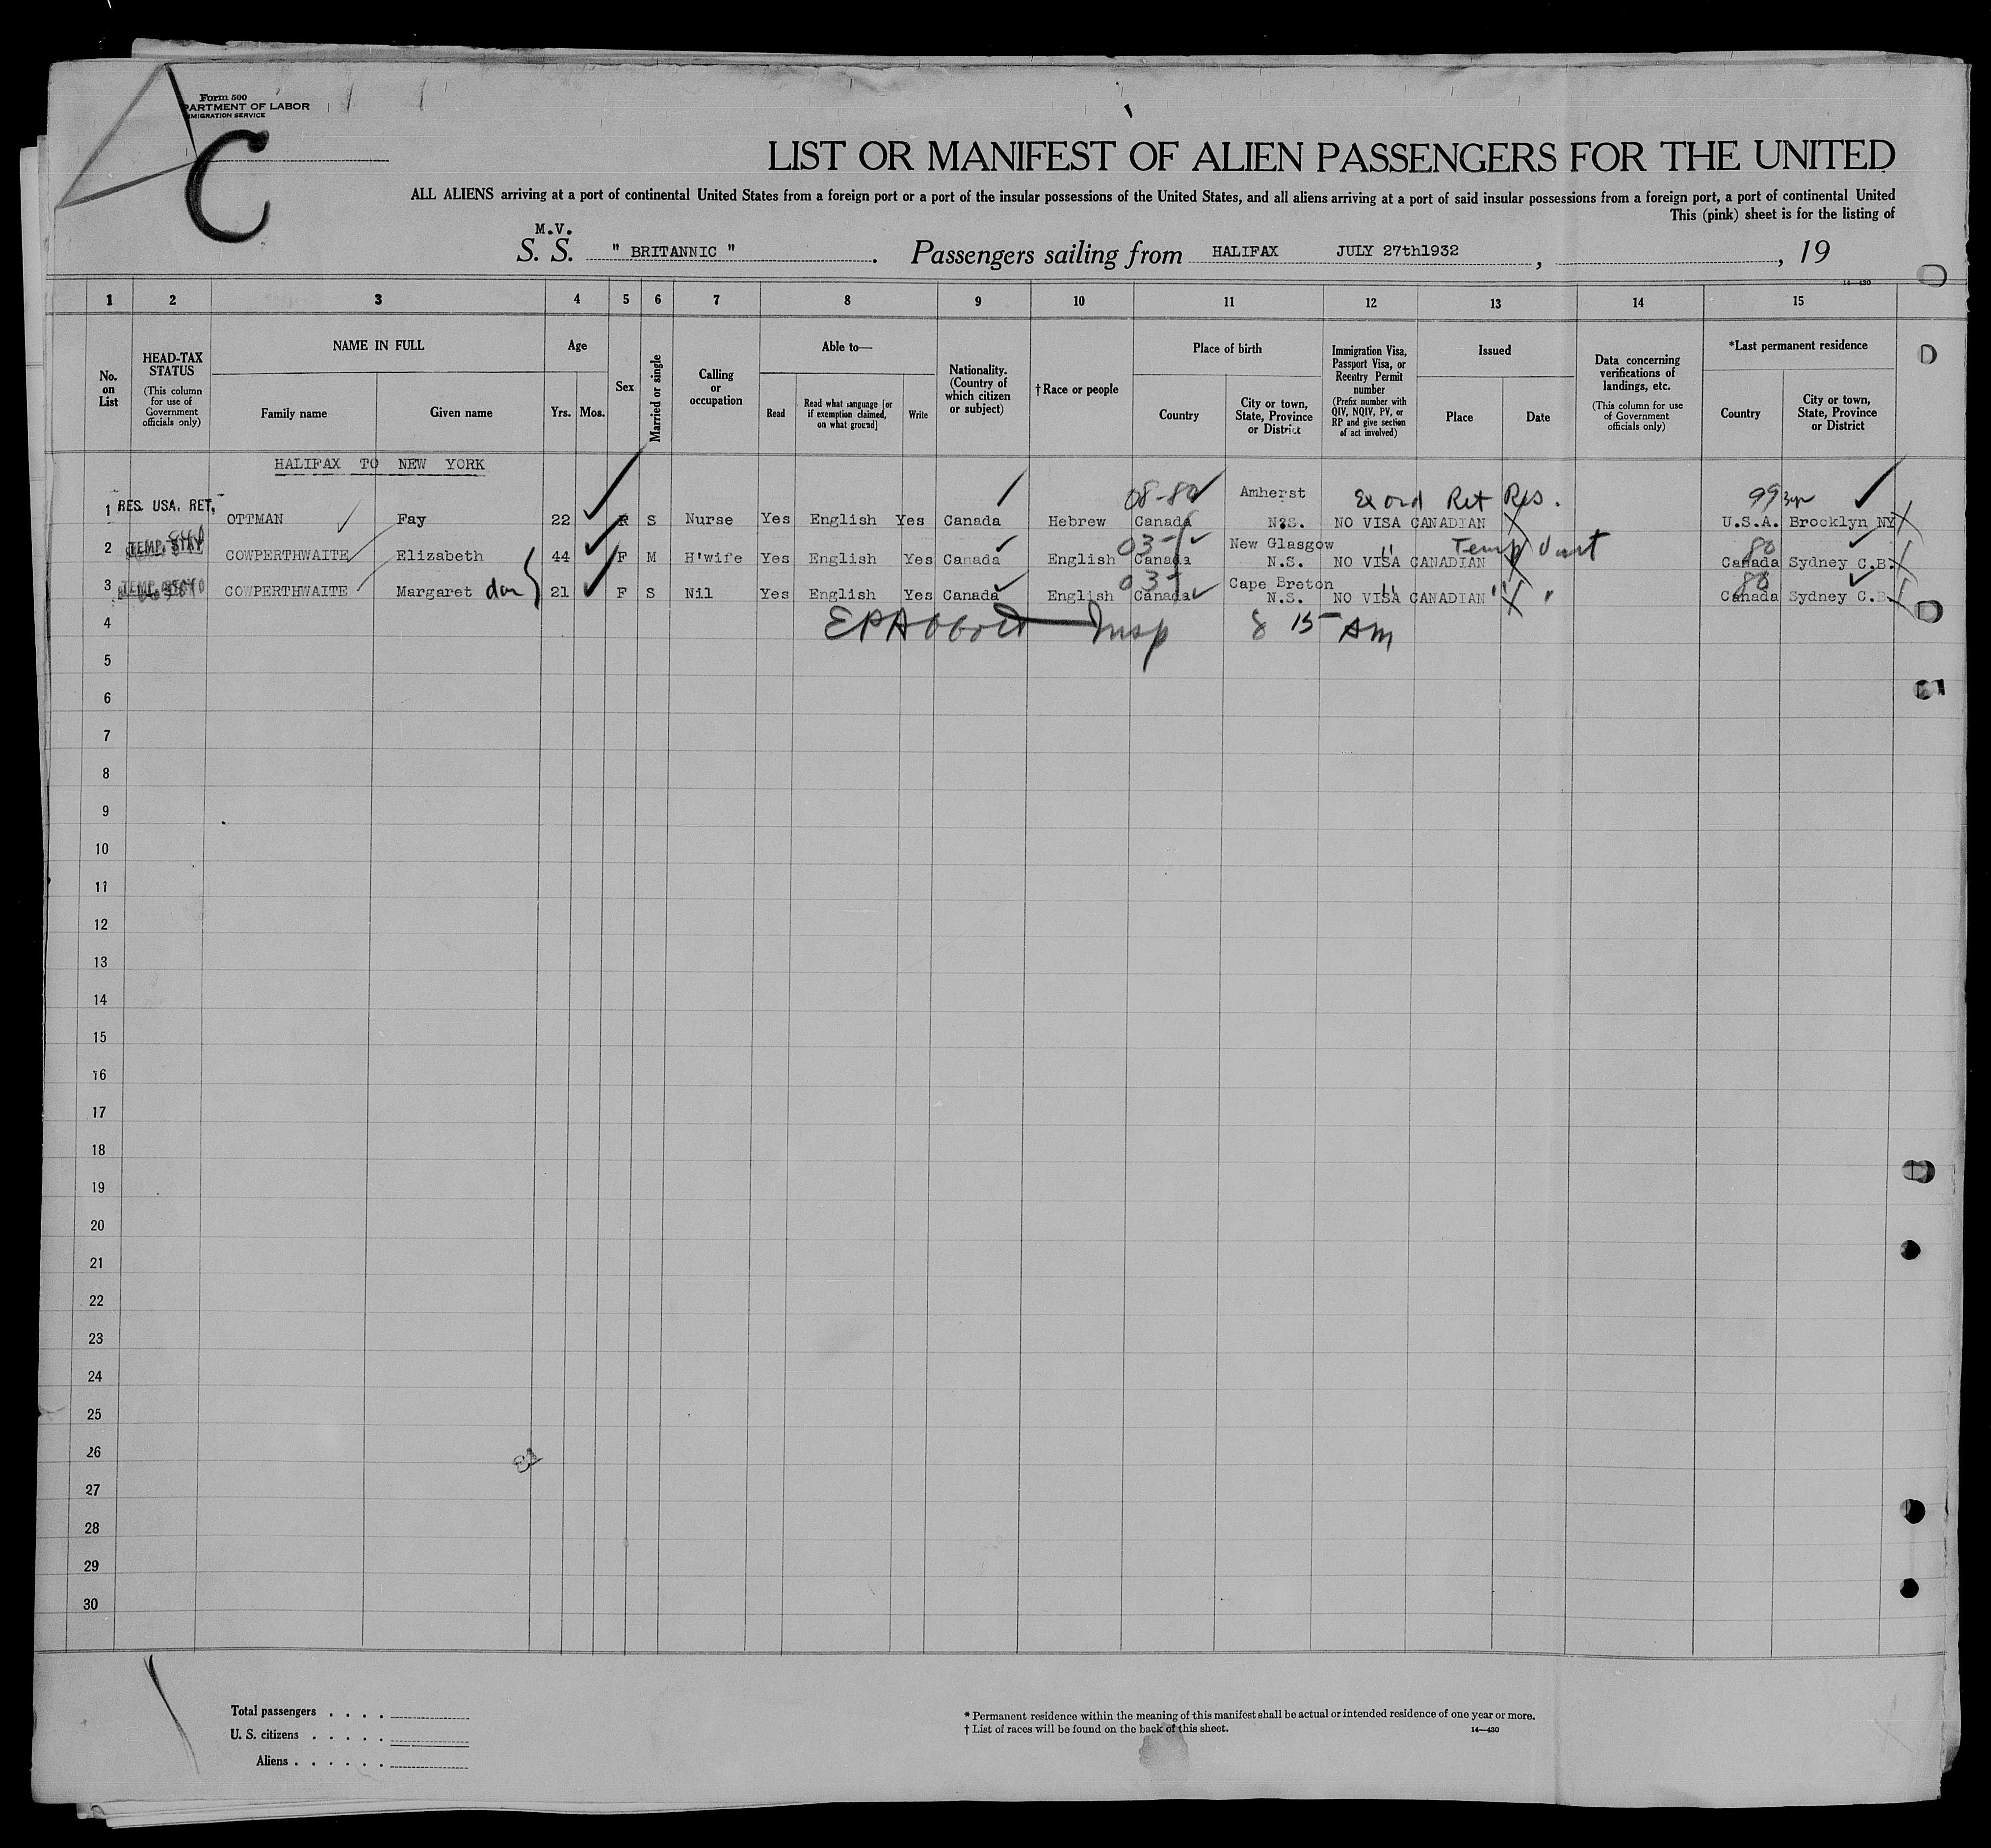 Form 500
PARTMENT OF LABOR
MIGRATION SERVICE
C
LIST OR MANIFEST OF ALIEN PASSENGERS FOR THE UNITED
ALL ALIENS arriving at a port of continental United States from a foreign port or a port of the insular possessions of the United States, and all aliens arriving at a port of said insular possessions from a foreign port, a port of continental United
This (pink) sheet is for the listing of
M.V.
S. S. " BRITANNIC " . Passengers sailing from HALIFAX JULY 27th1932 , , 19
14—430
1 2 3 4 5 6 7 8 9 10 11 12 13 14 15
No. on List
HEAD-TAX STATUS (This column for use of Government officials only)
NAME IN FULL
Family name Given name
Age
Yrs. Mos.
Sex
Married or single
Calling or occupation
Able to—
Read Read what language [or if exemption claimed, on what ground] Write
Nationality. (Country of which citizen or subject)
†Race or people
Place of birth
Country City or town, State, Province or District
Immigration Visa, Passport Visa, or Reentry Permit number (Prefix number with QIV, NQIV, PV, or RP and give section of act involved)
Issued
Place Date
Data concerning verifications of landings, etc. (This column for use of Government officials only)
*Last permanent residence
Country City or town, State, Province or District
HALIFAX TO NEW YORK
RES. USA. RET. 08-80 Amherst Ex ord Ret Res. 99 3yr
1 OTTMAN Fay 22 F S Nurse Yes English Yes Canada Hebrew Canada N.S. NO VISA CANADIAN U.S.A. Brooklyn NY
TEMP. STAY 03- New Glasgow " Temp Visit 80
2 COWPERTHWAITE Elizabeth 44 F M H'wife Yes English Yes Canada English Canada N.S. NO VISA CANADIAN Canada Sydney C.B.
TEMP. 03- Cape Breton " " " 80
3 COWPERTHWAITE Margaret dau 21 F S Nil Yes English Yes Canada English Canada N.S. NO VISA CANADIAN Canada Sydney C.B.
4 EPAbbott Insp 8 15 AM
5
6
7
8
9
10
11
12
13
14
15
16
17
18
19
20
21
22
23
24
25
26
27
28
29
30
Total passengers . . . .
U. S. citizens . . . . .
Aliens . . . . . .
* Permanent residence within the meaning of this manifest shall be actual or intended residence of one year or more.
† List of races will be found on the back of this sheet. 14—430